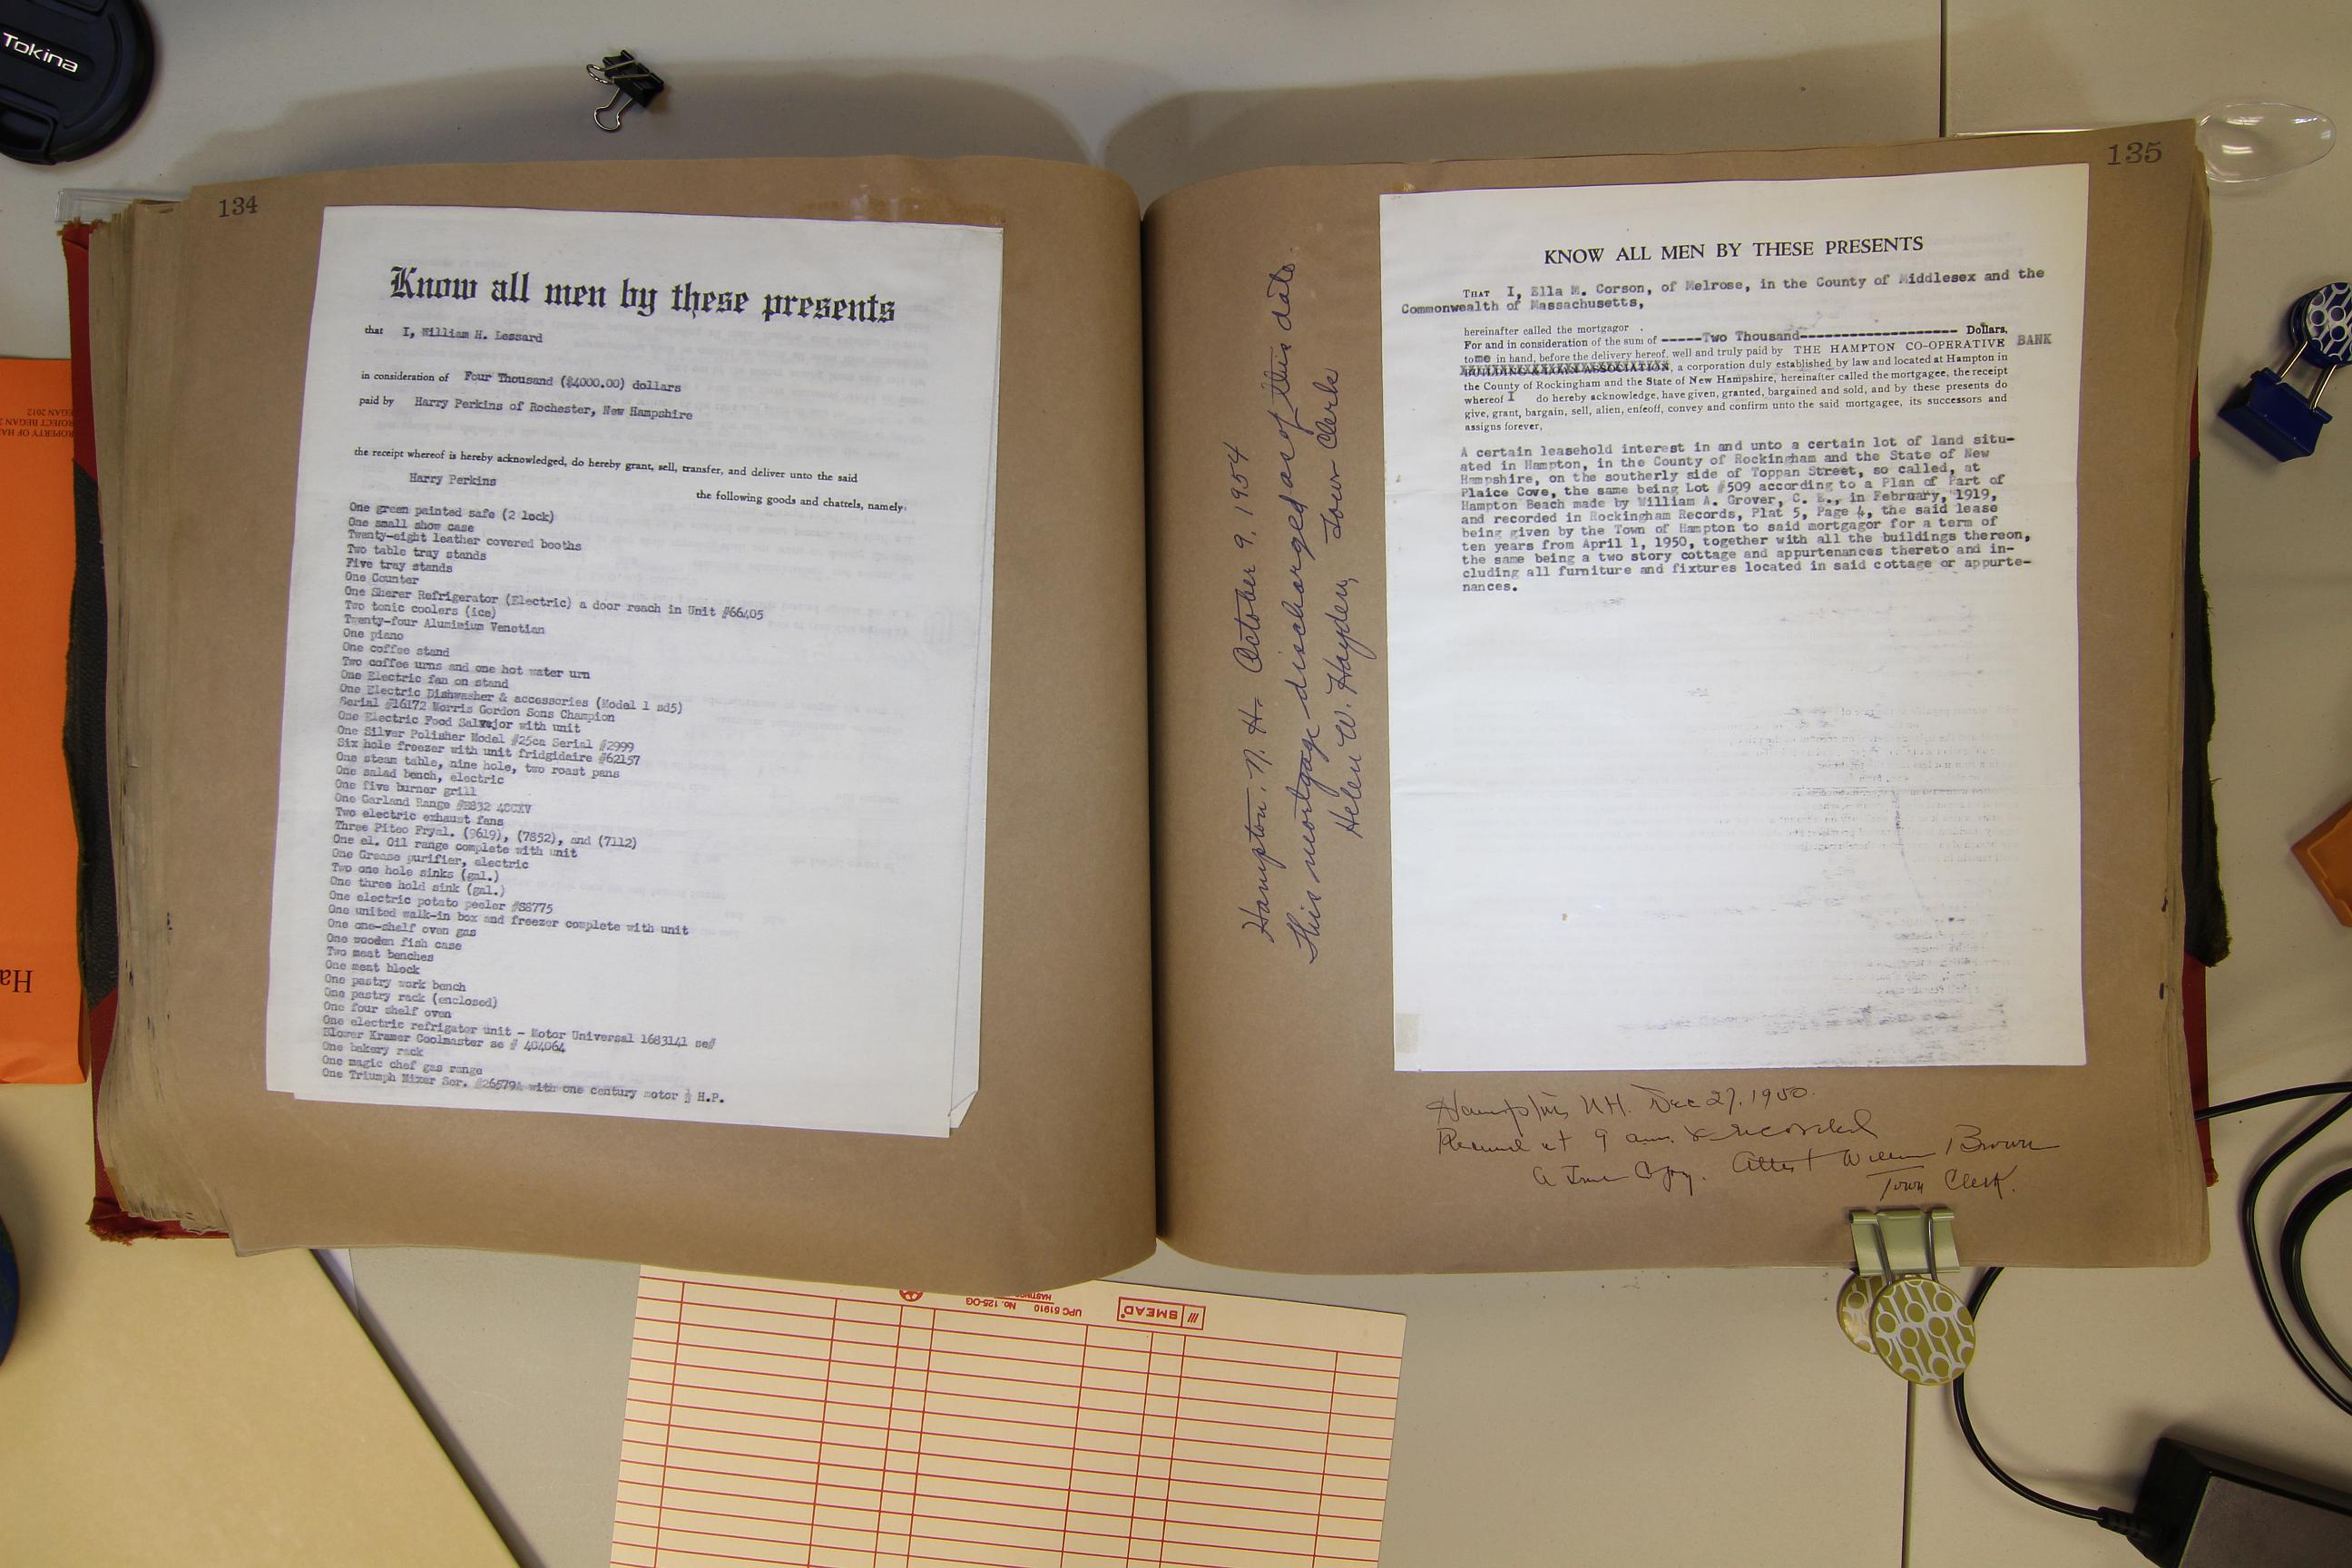 Tokina
134
Know all men by these presents
that I, William H. Lessard
in consideration of Four Thousand ($4000.00) dollars
paid by Harry Perkins of Rochester, New Hampshire
the receipt whereof is hereby acknowledged, do hereby grant, sell, transfer, and deliver unto the said
Harry Perkins
the following goods and chattels, namely:
One green painted safe (2 lock)
One small show case
Twenty-eight leather covered booths
Two table tray stands
Five tray stands
One Counter
One Sherer Refrigerator (Electric) a door reach in Unit #66405
Two tonic coolers (ice)
Twenty-four Aluminium Venetian
One piano
One coffee stand
Two coffee urns and one hot water urn
One Electric fan on stand
One Electric Dishwasher & accessories (Model 1 sd5)
Serial #16172 Morris Gordon Sons Champion
One Electric Food Salvajor with unit
One Silver Polisher Model #25ca Serial #2999
Six hole freezer with unit fridgidaire #62157
One steam table, nine hole, two roast pans
One salad bench, electric
One five burner grill
One Garland Range #B832 4CCXV
Two electric exhaust fans
Three Pitco Fryal. (9619), (7852), and (7112)
One el. Oil range complete with unit
One Grease purifier, electric
Two one hole sinks (gal.)
One three hold sink (gal.)
One electric potato peeler #S8775
One united walk-in box and freezer complete with unit
One one-shelf oven gas
One wooden fish case
Two meat benches
One meat block
One pastry work bench
One pastry rack (enclosed)
One four shelf oven
One electric refrigater unit - Motor Universal 1683141 se#
Blower Kramer Coolmaster se # 404064
One bakery rack
One magic chef gas range
One Triumph Mixer Ser. #26579A with one century motor ½ H.P.
Hampton, N. H. October 9, 1954
This mortgage discharged as of this date.
Helen W. Hayden, Town Clerk
135
KNOW ALL MEN BY THESE PRESENTS
THAT I, Ella M. Corson, of Melrose, in the County of Middlesex and the
Commonwealth of Massachusetts,
hereinafter called the mortgagor .
For and in consideration of the sum of -----Two Thousand-------------------- Dollars,
to me in hand, before the delivery hereof, well and truly paid by THE HAMPTON CO-OPERATIVE BANK
BUILDING & LOAN ASSOCIATION, a corporation duly established by law and located at Hampton in
the County of Rockingham and the State of New Hampshire, hereinafter called the mortgagee, the receipt
whereof I do hereby acknowledge, have given, granted, bargained and sold, and by these presents do
give, grant, bargain, sell, alien, enfeoff, convey and confirm unto the said mortgagee, its successors and
assigns forever,
A certain leasehold interest in and unto a certain lot of land situ-
ated in Hampton, in the County of Rockingham and the State of New
Hampshire, on the southerly side of Toppan Street, so called, at
Plaice Cove, the same being Lot #509 according to a Plan of Part of
Hampton Beach made by William A. Grover, C. E., in February, 1919,
and recorded in Rockingham Records, Plat 5, Page 4, the said lease
being given by the Town of Hampton to said mortgagor for a term of
ten years from April 1, 1950, together with all the buildings thereon,
the same being a two story cottage and appurtenances thereto and in-
cluding all furniture and fixtures located in said cottage or appurte-
nances.
Hampton N.H. Dec 27, 1950.
Received at 9 am & recorded
A True Copy. Attest William Brown
Town Clerk.
SMEAD
UPC 51910
No. 125-OG